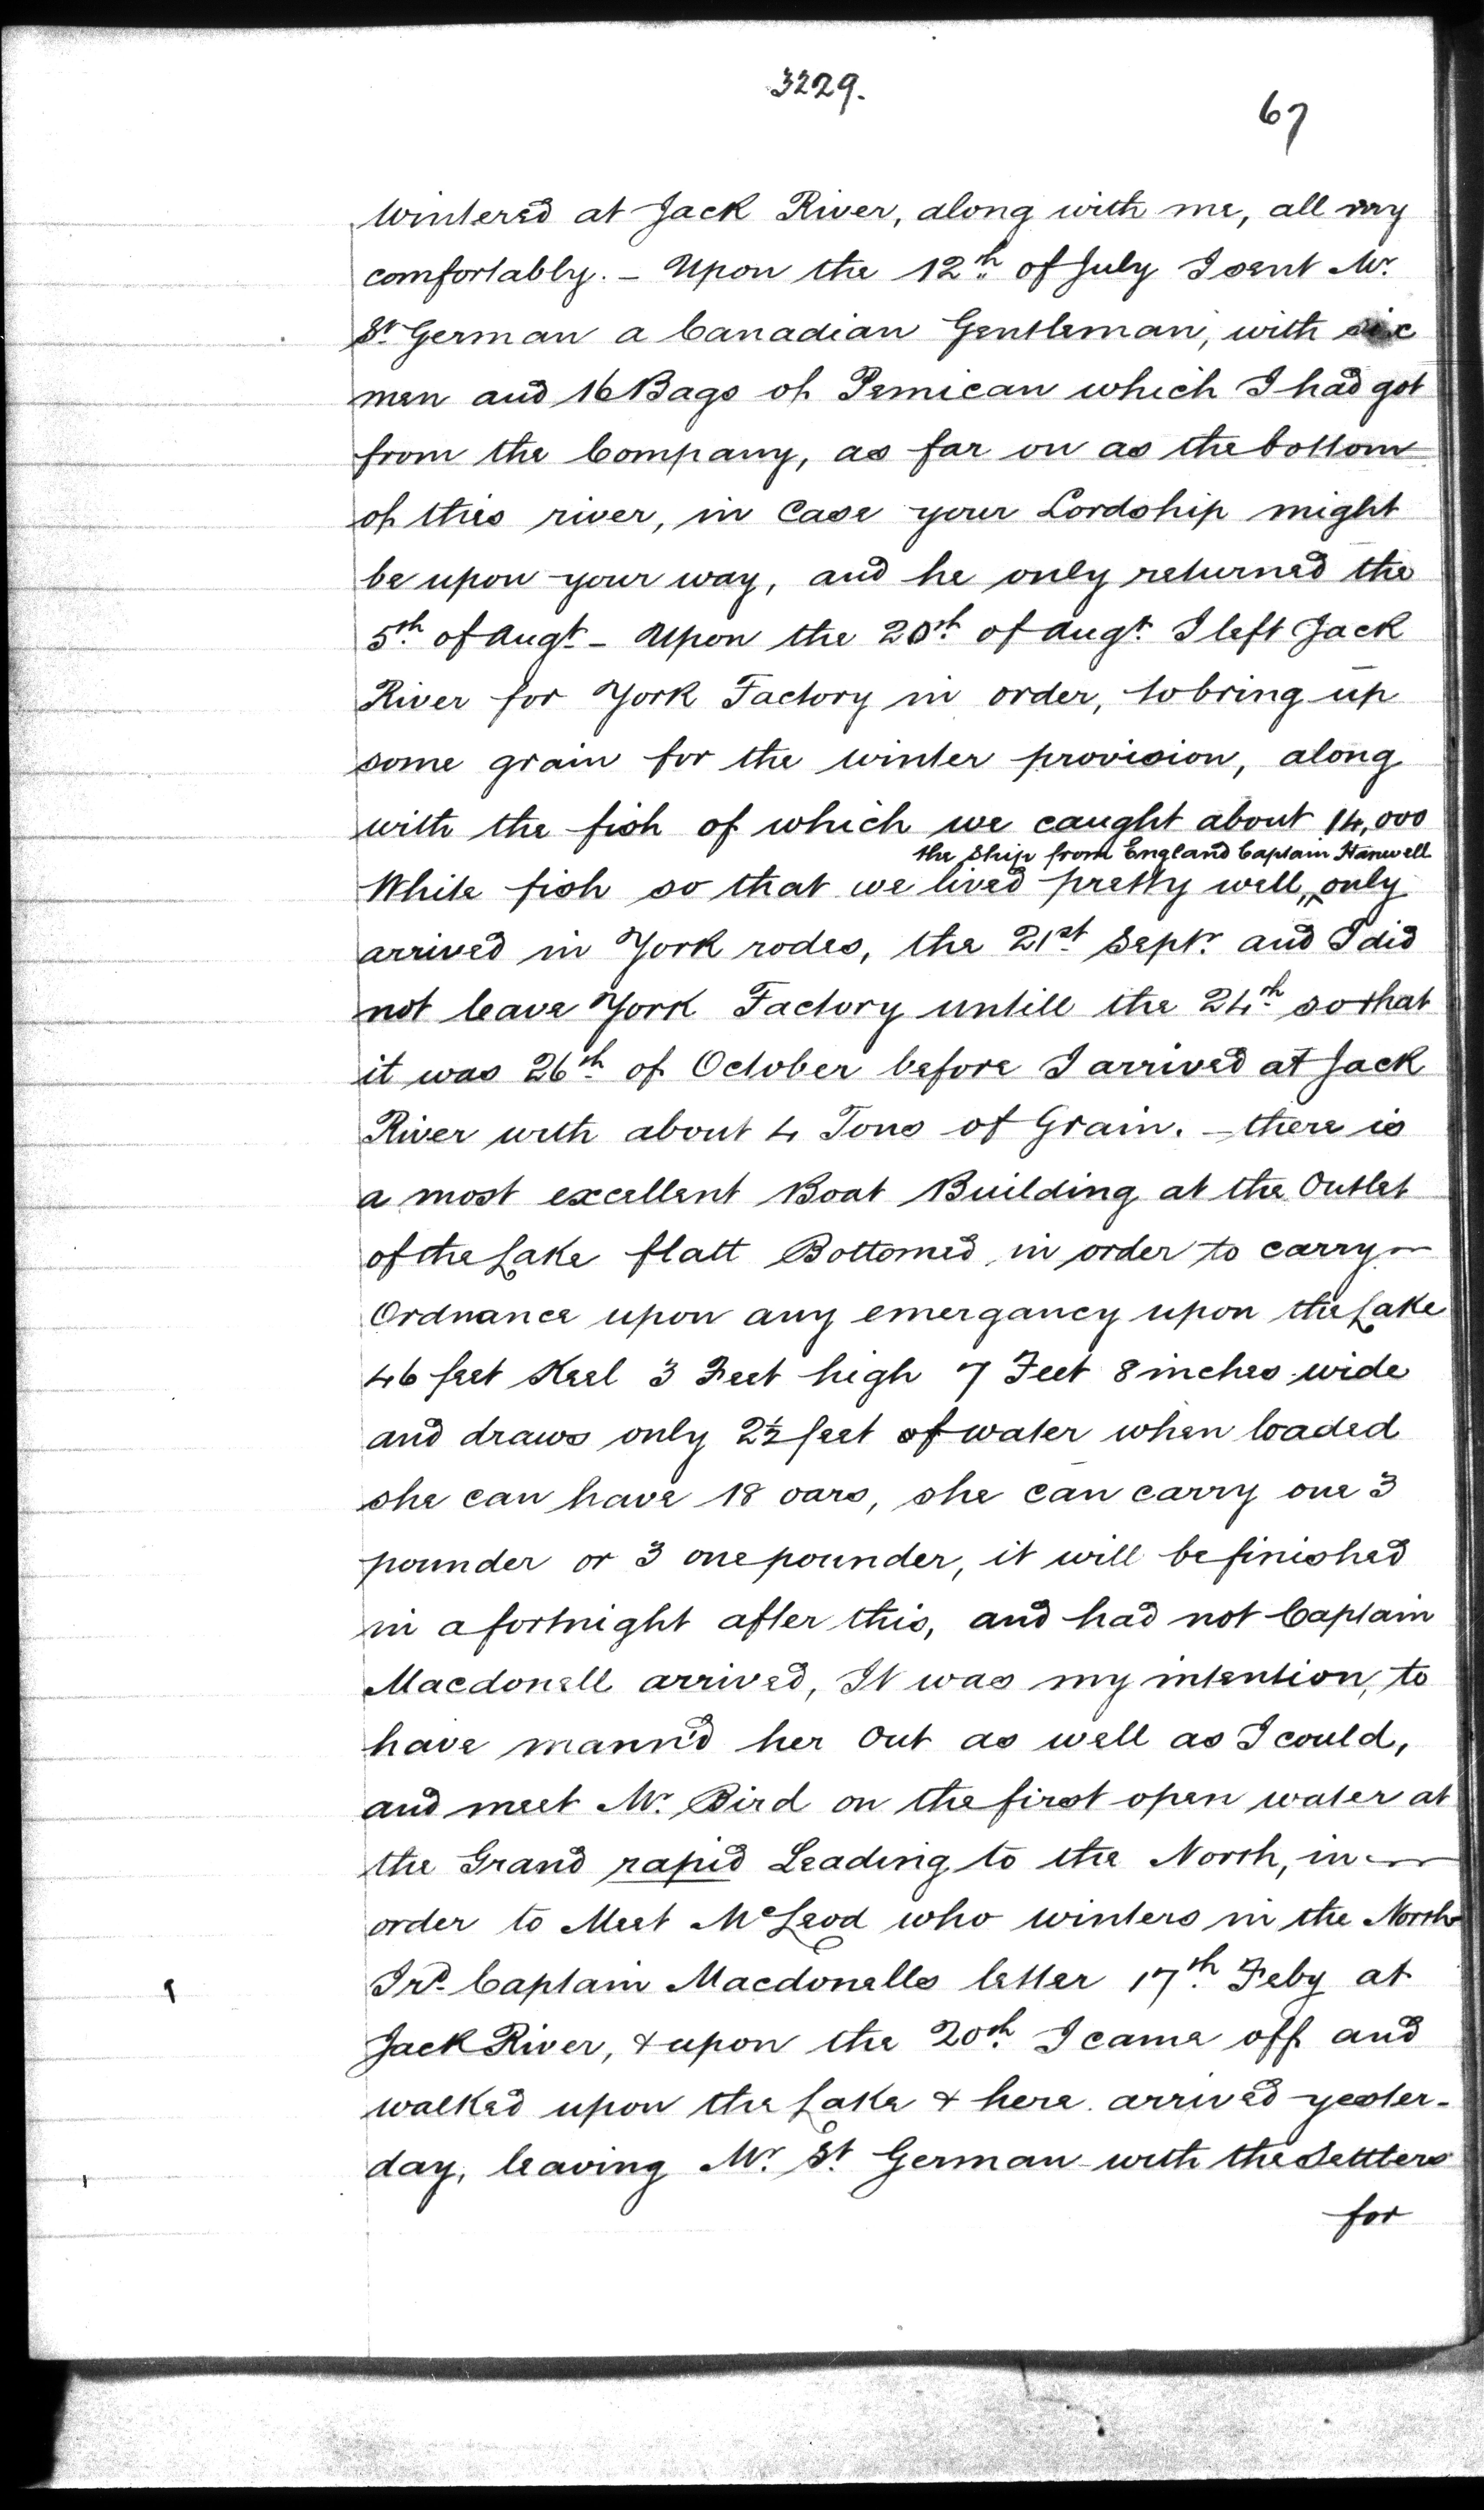 3229.
67
wintered at Jack River, along with me, all very
comfortably. – Upon the 12th of July I sent Mr.
St. German a Canadian Gentleman, with six
men and 16 Bags of Pemican which I had got
from the Company, as far on as the bottom
of this river, in Case your Lordship might
be upon your way, and he only returned the
5th of Augt. – Upon the 20th of Augt. I left Jack
River for York Factory in order, to bring up
some grain for the winter provision, along
with the fish of which we caught about 14,000
the Ship from England Captain Hanwell
White fish so that we lived pretty well, only
arrived in York rodes, the 21st Septr. and I did
not leave York Factory untill the 24th so that
it was 26th of October before I arrived at Jack
River with about 4 Tons of Grain. – there is
a most excellent Boat Building at the Outlet
of the Lake flatt Bottomed in order to carry
Ordnance upon any emergancy upon the Lake
46 feet Keel 3 Feet high 7 Feet 8 inches wide
and draws only 2½ feet of water when loaded
she can have 18 oars, she can carry one 3
pounder or 3 one pounder, it will be finished
in a fortnight after this, and had not Captain
Macdonell arrived, It was my intention, to
have mann'd her Out as well as I could,
and meet Mr. Bird on the first open water at
the Grand rapid Leading to the North, in
order to Meet McLeod who winters in the North
Ird. Captain Macdonells letter 17th Feby at
Jack River, & upon the 20th I came off and
walked upon the Lake & here arrived yester-
day, leaving Mr. St. German with the Settlers
for